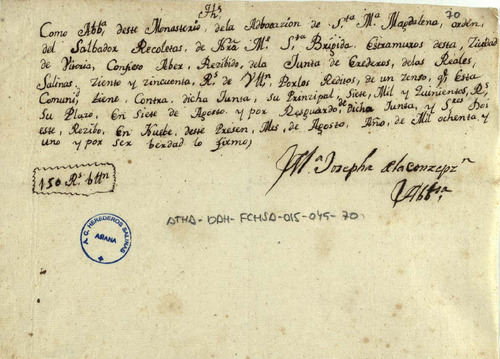 Jhs
70
Como Abb.ª deste Monasterio, dela Advocazion de S.ta M.ª Magdalena, orden,
del Salbador Recoletas, de Nra M.e S.ta Brigida. Extramuros desta, Ziudad
de Vitoria, Confieso Aber, Rezibido, dela Junta de Erederos, delas Reales,
Salinas, Ziento y zinquenta, R.s de Vlln, Porlos Reditos, de un zenso, q.e Esta
Comuni.d tiene, Contra, dicha Junta, su Prinzipal, Siete, Mil y Quinientos, R.s
Su Plazo, En Siete de Agosto, y por Resguardo, de dicha Junta, y S.res Doi
este, Rezibo. En Nuebe, deste Presen.te Mes, de Agosto, Año, de Mil ochenta, y
uno y por ser berdad lo firmo,
M.ª Josepha dela Conzepz.n
Abb.sa
150 R.s blln
ATHA-DAH-FCHSA-015-045-70
A. C. HEREDEROS SALINAS
AÑANA